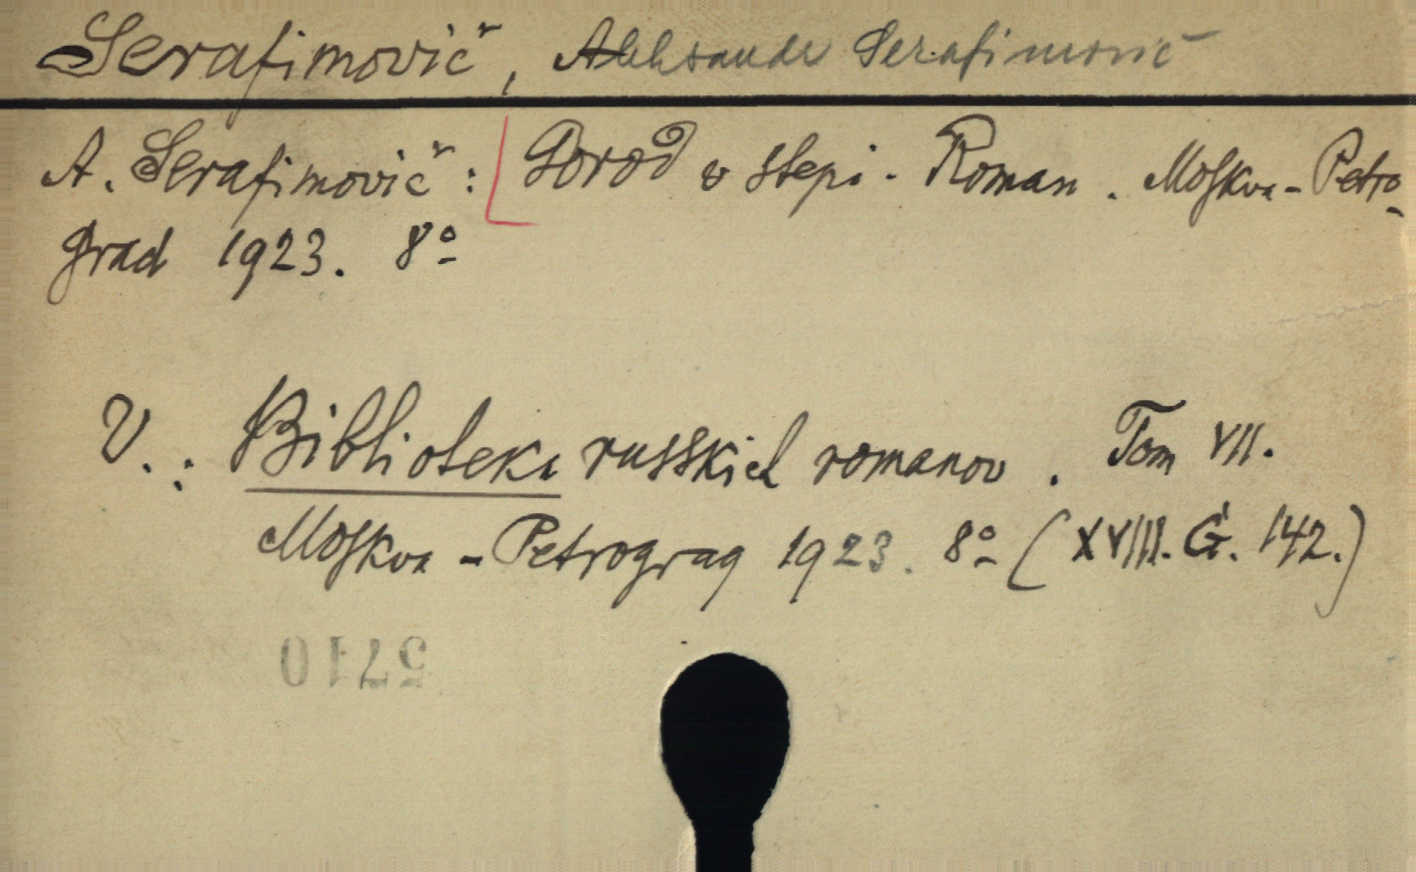 Serafimovič, Aleksandr Serafimovič
A. Serafimovič: Gorod v stepi. Roman. Moskva-Petro-
grad 1923. 8º
V.: Biblioteka russkich romanov. Tom VII.
Moskva-Petrograg 1923. 8º (XVIII. G. 142.)
5710